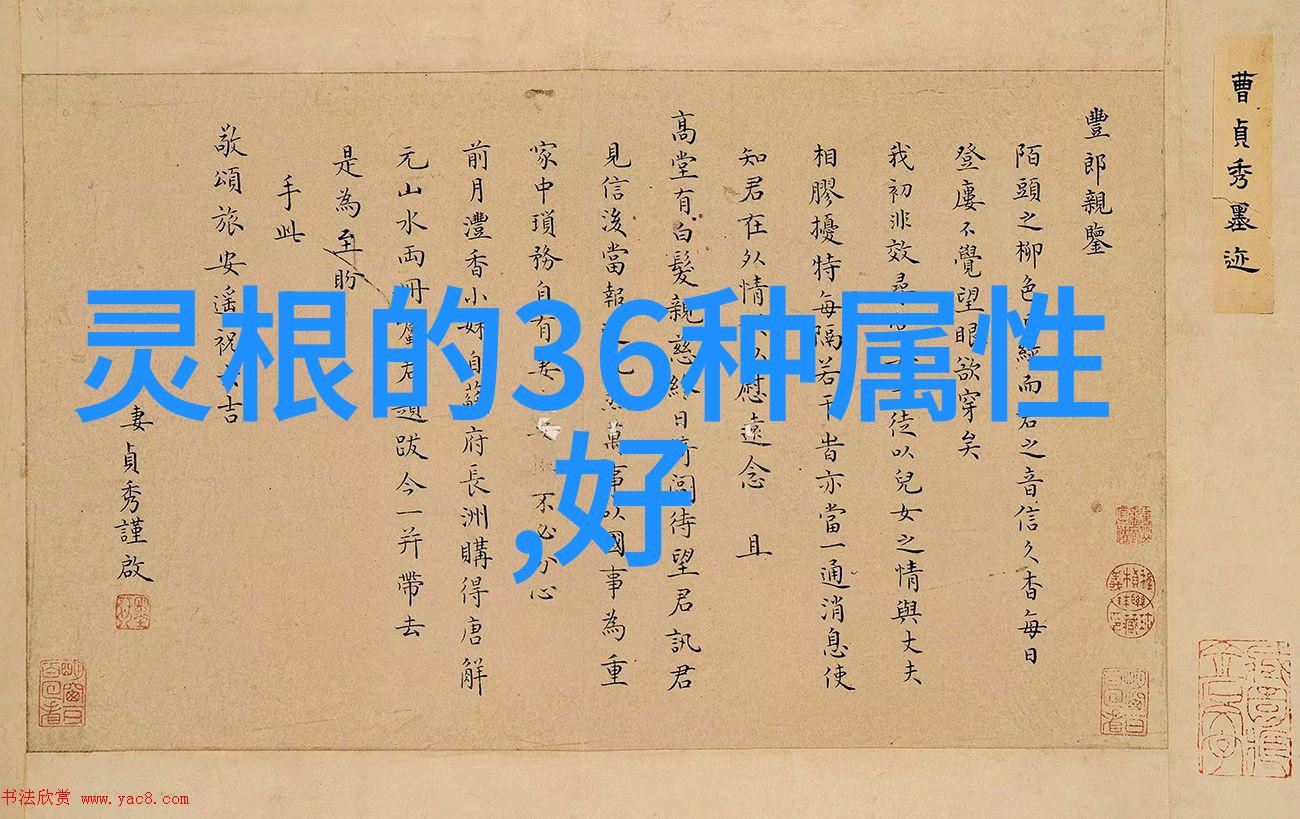 灵根的36种属性
,好
曹貞秀墨迹
豐郎親鑒
陌頭之柳色經而君之音信久杳每日
登廔不覺望眼欲穿矣
我初非效尋徒以兒女之情與丈夫
相膠擾特每隔若干時亦當一通消息使
知君在外情以慰遠念 且
高堂有白髮親慈終日倚閭待望君訊君
見信後當報萬事以國事為重
家中瑣務自有妻不必分心
前月灃香小妹自蘇府長洲購得唐解
元山水両冊屬君題跋今一并帶去
是為至盼
手此
敬頌旅安遥祝大吉
妻貞秀謹啟
书法欣赏 www.yac8.com